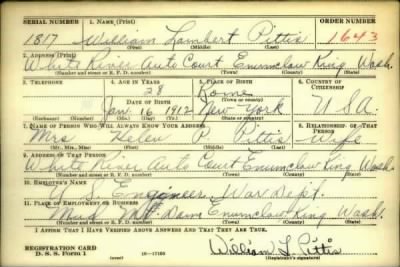 SERIAL NUMBER 1. NAME (Print) ORDER NUMBER
1817 William Lambert Pittis 1643
(First) (Middle) (Last)
2. ADDRESS (Print)
White River Auto Court Enumclaw King Wash.
(Number and street or R. F. D. number) (Town) (County) (State)
3. TELEPHONE 4. AGE IN YEARS 5. PLACE OF BIRTH 6. COUNTRY OF CITIZENSHIP
28 Rome
DATE OF BIRTH (Town or county)
Jan. 16 1912 New York U S A.
(Exchange) (Number) (Mo.) (Day) (Yr.) (State or country)
7. NAME OF PERSON WHO WILL ALWAYS KNOW YOUR ADDRESS 8. RELATIONSHIP OF THAT PERSON
Mrs Helen Pittis Wife
(Mr., Mrs., Miss) (First) (Middle) (Last)
9. ADDRESS OF THAT PERSON
White River Auto Court Enumclaw King Wash.
(Number and street or R. F. D. number) (Town) (County) (State)
10. EMPLOYER'S NAME
U. S. Engineer War Dept.
11. PLACE OF EMPLOYMENT OR BUSINESS
Mud Mt. Dam Enumclaw King Wash.
(Number and street or R. F. D. number) (Town) (County) (State)
I AFFIRM THAT I HAVE VERIFIED ABOVE ANSWERS AND THAT THEY ARE TRUE.
REGISTRATION CARD
D. S. S. Form 1 (over) William L Pittis
(Registrant's signature)